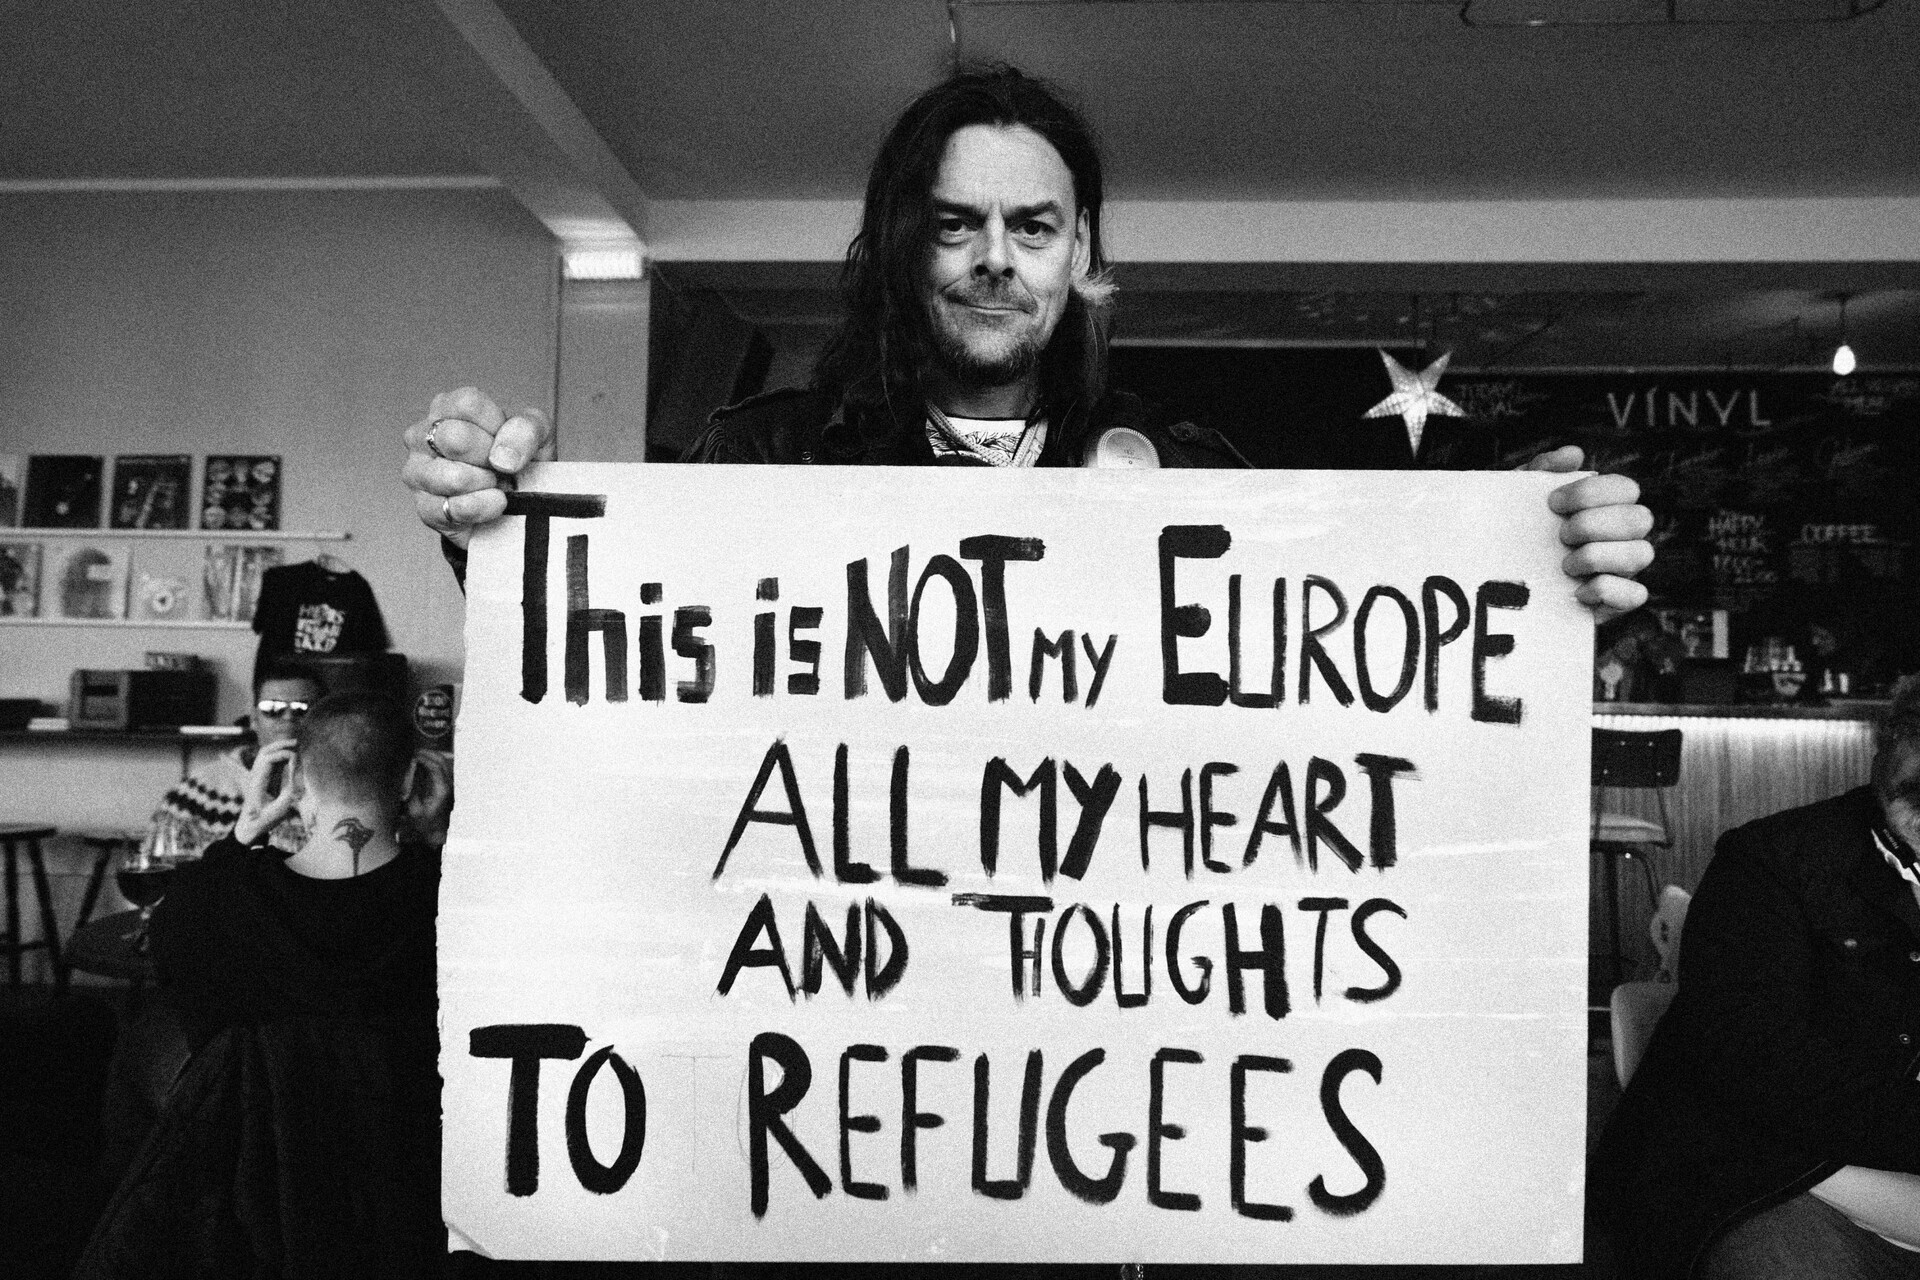 VÍNYL
HAPPY
HOUR
COFFEE
This is NOT MY EUROPE
ALL MY HEART
AND THOUGHTS
TO REFUGEES